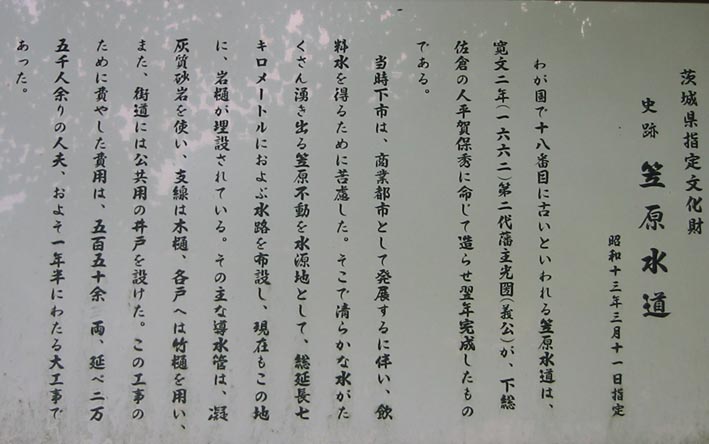 茨城県指定文化財
史跡 笠原水道
昭和十三年三月十一日指定
わが国で十八番目に古いといわれる笠原水道は、
寛文二年(一六六二)第二代藩主光圀(義公)が、下総
佐倉の人平賀保秀に命じて造らせ翌年完成したもの
である。
当時下市は、商業都市として発展するに伴い、飲
料水を得るために苦慮した。そこで清らかな水がた
くさん湧き出る笠原不動を水源地として、総延長七
キロメートルにおよぶ水路を布設し、現在もこの地
に、岩樋が埋設されている。その主な導水管は、凝
灰質砂岩を使い、支線は木樋、各戸へは竹樋を用い、
また、街道には公共用の井戸を設けた。この工事の
ために費やした費用は、五百五十余 両、延べ二万
五千人余りの人夫、およそ一年半にわたる大工事で
あった。